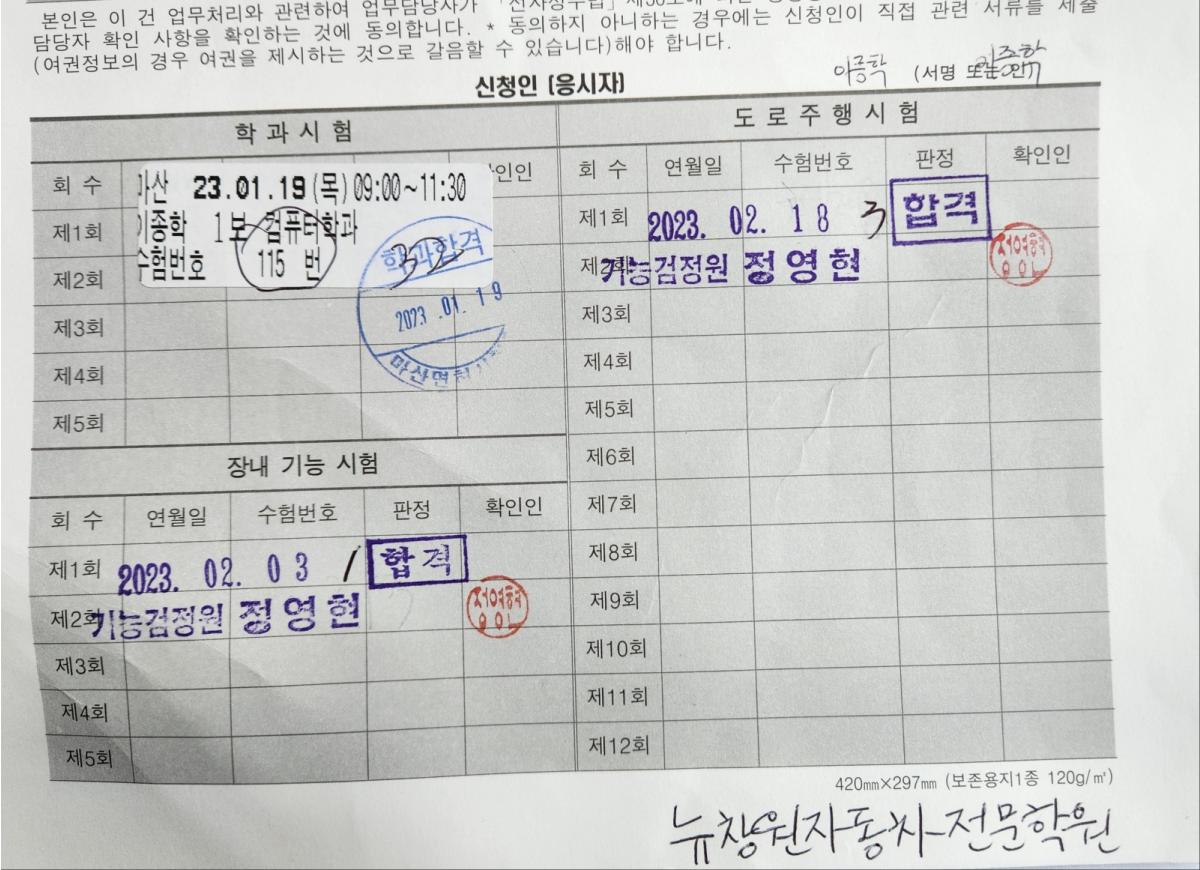 본인은 이 건 업무처리와 관련하여 업무담당사가 「전자정부법」 제36조에
담당자 확인 사항을 확인하는 것에 동의합니다. * 동의하지 아니하는 경우에는 신청인이 직접 관련 서류를 제출
(여권정보의 경우 여권을 제시하는 것으로 갈음할 수 있습니다)해야 합니다.
신청인 (응시자) 이종학 (서명 또는 인)
학 과 시 험
회 수 확인인
마산 23.01.19(목)09:00~11:30
이종학 1보 컴퓨터학과
수험번호 115 번
학과합격
2023 .01. 19
마산면허
제1회
제2회
제3회
제4회
제5회
장내 기능 시험
회 수 연월일 수험번호 판정 확인인
제1회 2023. 02. 03 1 합격
제2회 기능검정원 정영현
제3회
제4회
제5회
도 로 주 행 시 험
회 수 연월일 수험번호 판정 확인인
제1회 2023. 02. 18 3 합격
제2회 기능검정원 정영현
제3회
제4회
제5회
제6회
제7회
제8회
제9회
제10회
제11회
제12회
420㎜×297㎜ (보존용지1종 120g/㎡)
뉴창원자동차전문학원